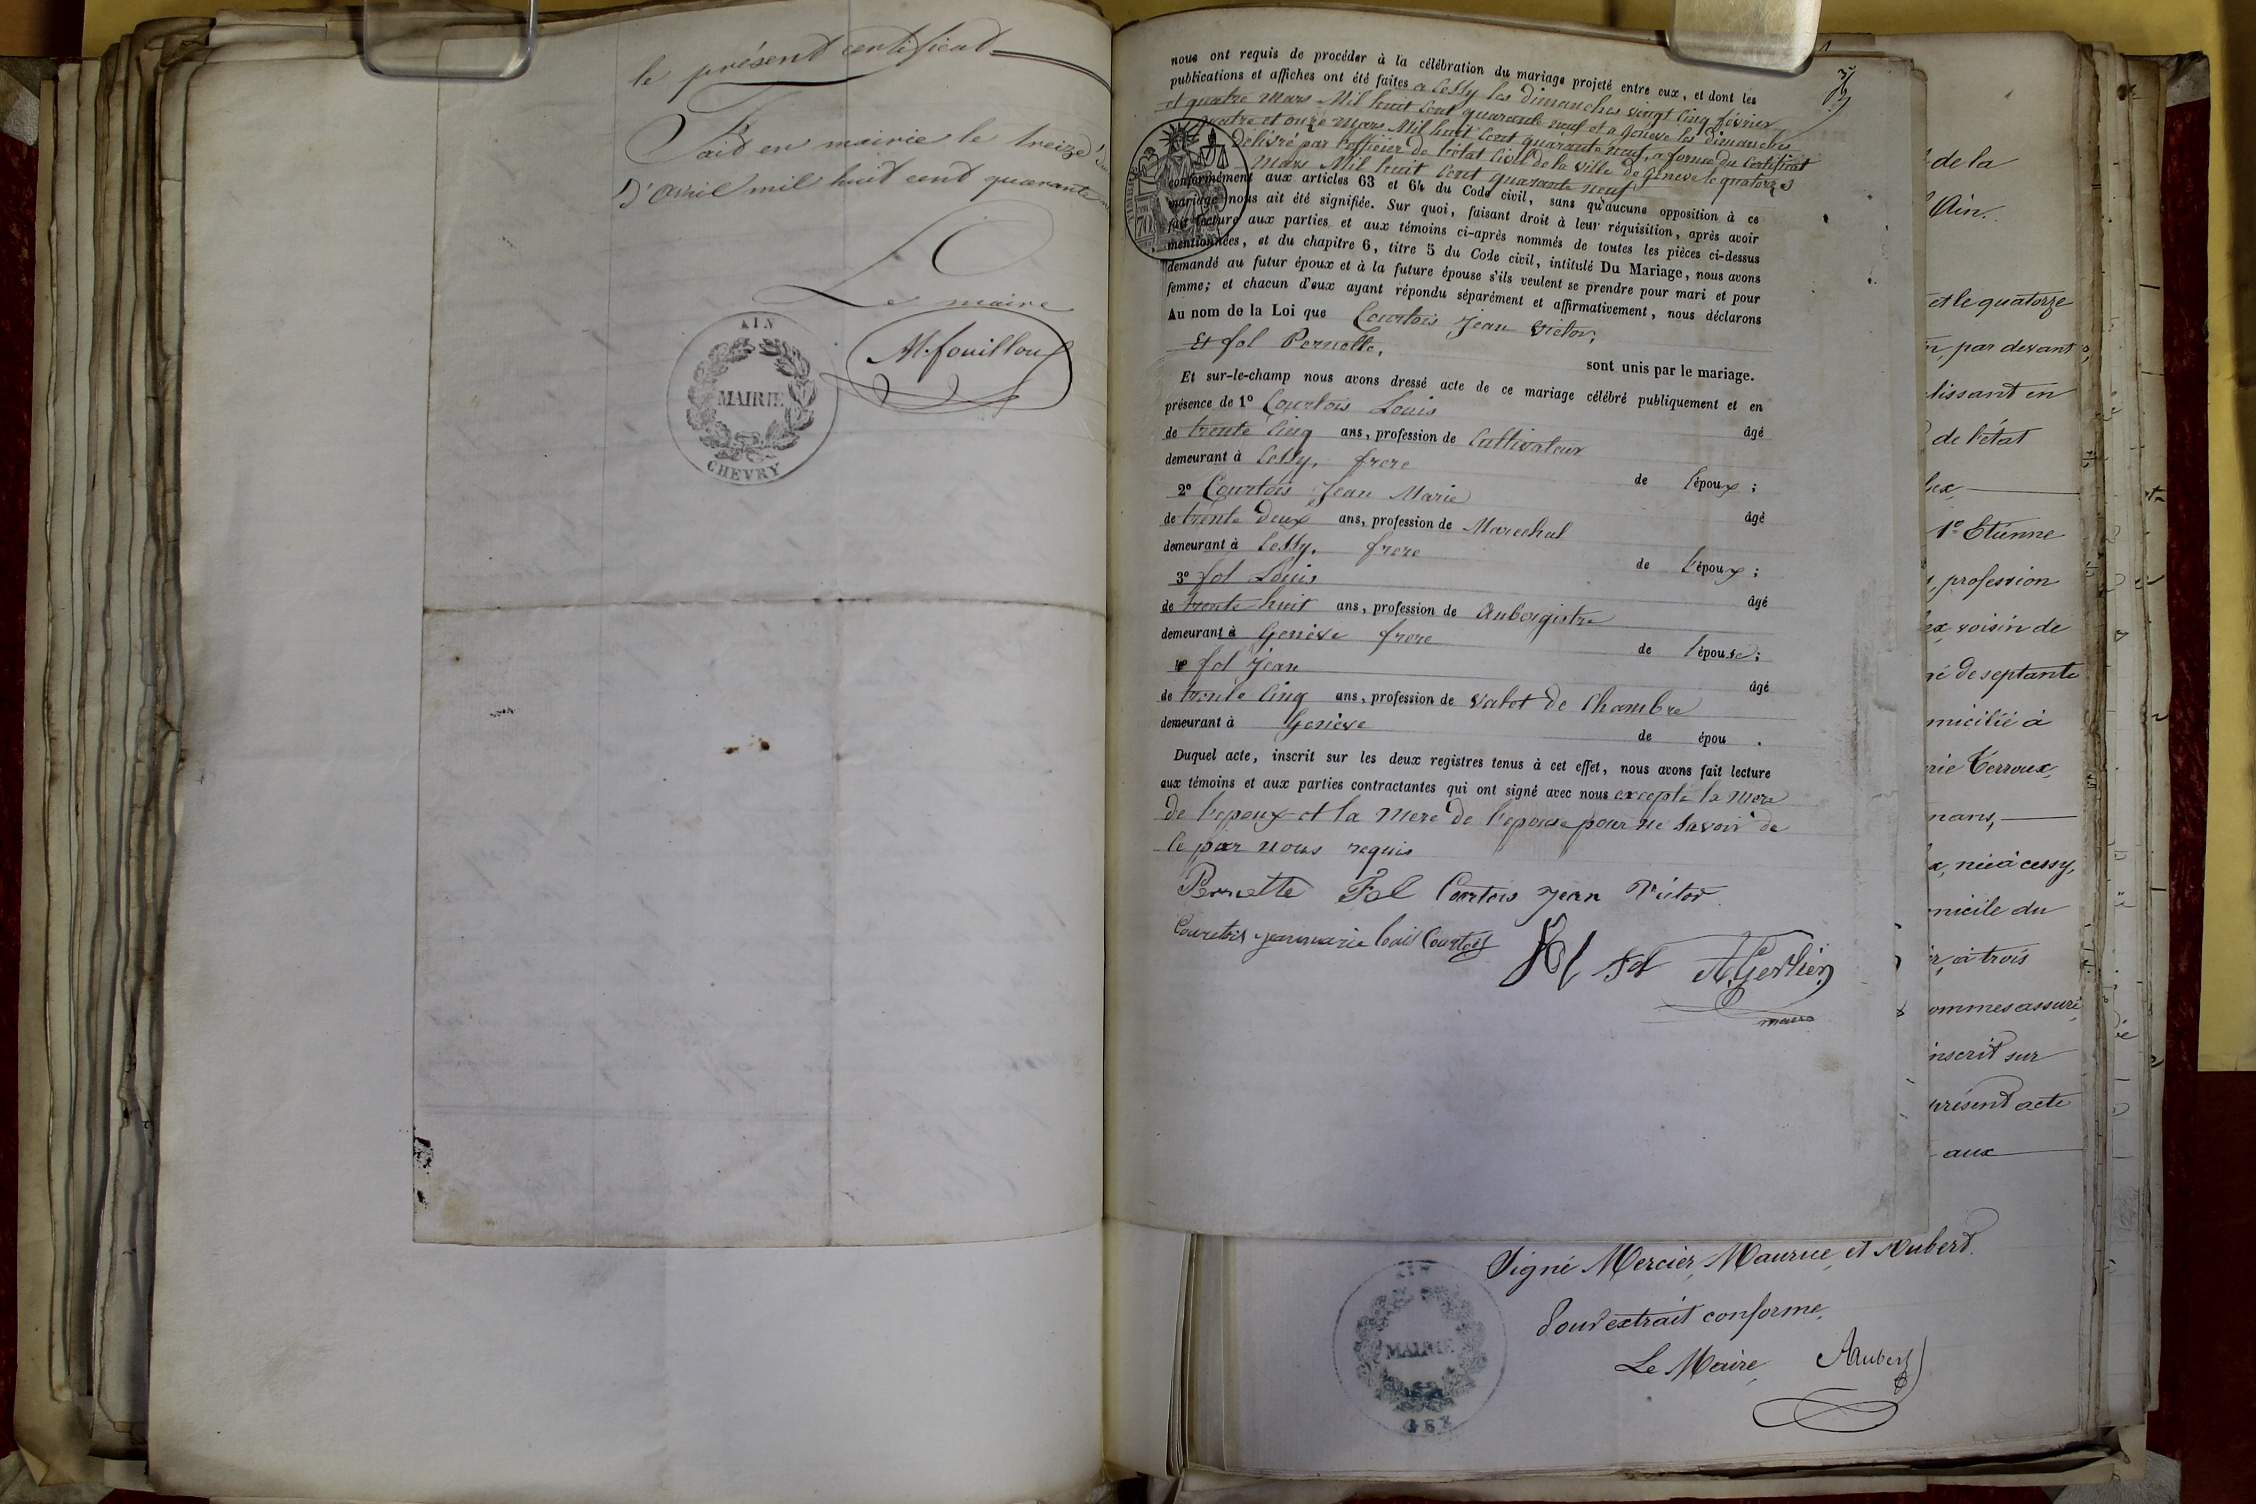 le présent certificat
Fait en mairie le treize
D'avril mil huit cent quarante
Le maire
M. fouilloux
AIN
MAIRIE
CHEVRY
nous ont requis de procéder à la célébration du mariage projeté entre eux, et dont les
publications et affiches ont été faites a Cessy les dimanches vingt cinq février
et quatre mars Mil huit cent quarante neuf et a Geneve les dimanches
quatre et onze mars Mil huit cent quarante neuf, a forme du Certificat
Délivré par l'officier de l'état civil de la ville de Geneve le quatorze
mars Mil huit cent quarante neuf
conformément aux articles 63 et 64 du Code civil, sans qu'aucune opposition à ce
mariage nous ait été signifiée. Sur quoi, faisant droit à leur réquisition, après avoir
fait lecture aux parties et aux témoins ci-après nommés de toutes les pièces ci-dessus
mentionnées, et du chapitre 6, titre 5 du Code civil, intitulé Du Mariage, nous avons
demandé au futur époux et à la future épouse s'ils veulent se prendre pour mari et pour
femme; et chacun d'eux ayant répondu séparément et affirmativement, nous déclarons
Au nom de la Loi que Courtois Jean Victor,
Et fol Pernette,
sont unis par le mariage.
Et sur-le-champ nous avons dressé acte de ce mariage célébré publiquement et en
présence de 1º Courtois Louis
âgé
de trente cinq ans, profession de Cultivateur
demeurant à Cessy, frere de l'époux;
2º Courtois Jean Marie
âgé
de trente deux ans, profession de Marechal
demeurant à Cessy, frere de l'époux;
3º fol Louis
âgé
de trente huit ans, profession de Aubergiste
demeurant à Genève frere de l'épouse;
4º fol Jean
âgé
de trente cinq ans, profession de valet de Chambre
demeurant à Genève
de épou .
Duquel acte, inscrit sur les deux registres tenus à cet effet, nous avons fait lecture
aux témoins et aux parties contractantes qui ont signé avec nous excepté la mere
de l'epoux et la mere de l'epouse pour ne savoir de
ce par nous requis
Pernette Fol Courtois Jean Victor
Courtois jeanmarie louis Courtois
fol A. Gerlier
maire
de la
Ain.
et le quatorze
par devant
de l'état
1º Etienne
profession
voisin de
de septante
à
Terroux,
née à cessy,
du
à trois
sommes assuré
inscrit sur
présent acte
aux
Signé Mercier, Maurice, et Aubert.
Pour extrait conforme.
Le Maire, Aubert
AIN
MAIRIE
GEX